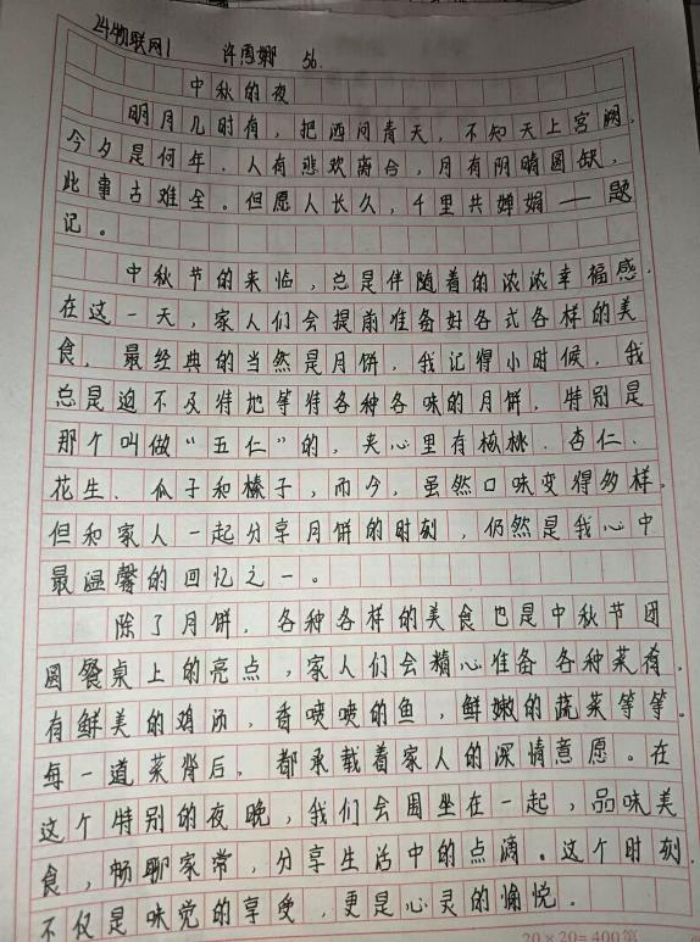 24物联网1 许周娜 56.
中秋的夜
明月几时有，把酒问青天，不知天上宫阙，
今夕是何年，人有悲欢离合，月有阴晴圆缺，
此事古难全。但愿人长久，千里共婵娟——题
记。
中秋节的来临，总是伴随着的浓浓幸福感，
在这一天，家人们会提前准备好各式各样的美
食，最经典的当然是月饼，我记得小时候，我
总是迫不及待地等待各种各味的月饼，特别是
那个叫做“五仁”的，夹心里有核桃、杏仁、
花生、瓜子和榛子，而今，虽然口味变得多样，
但和家人一起分享月饼的时刻，仍然是我心中
最温馨的回忆之一。
除了月饼，各种各样的美食也是中秋节团
圆餐桌上的亮点，家人们会精心准备各种菜肴，
有鲜美的鸡汤，香喷喷的鱼，鲜嫩的蔬菜等等。
每一道菜背后，都承载着家人的深情意愿。在
这个特别的夜晚，我们会围坐在一起，品味美
食，畅聊家常，分享生活中的点滴。这个时刻，
不仅是味觉的享受，更是心灵的愉悦。
20×20=400